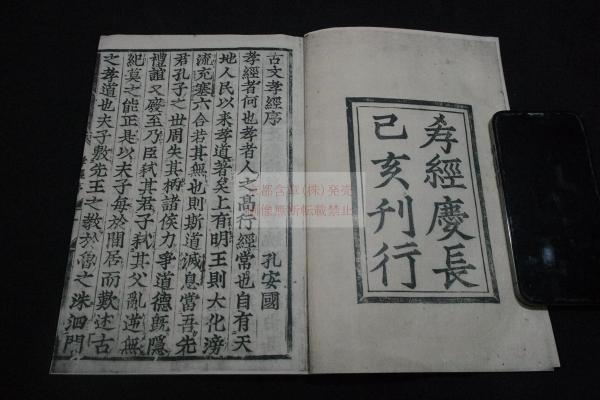 孝經慶長
己亥刊行
古文孝經序
孔安國
孝經者何也孝者人之髙行經常也自有天
地人民以来孝道著矣上有明王則大化滂
流充塞六合若其無也則斯道滅息當吾先
君孔子之世周失其柄諸侯力争道德既隱
禮誼又廢至乃臣弑其君子弑其父亂逆無
紀莫之能正是以夫子每於閒居而歎述古
之孝道也夫子敷先王之教於魯之洙泗門
(株)発売
画像無断転載禁止